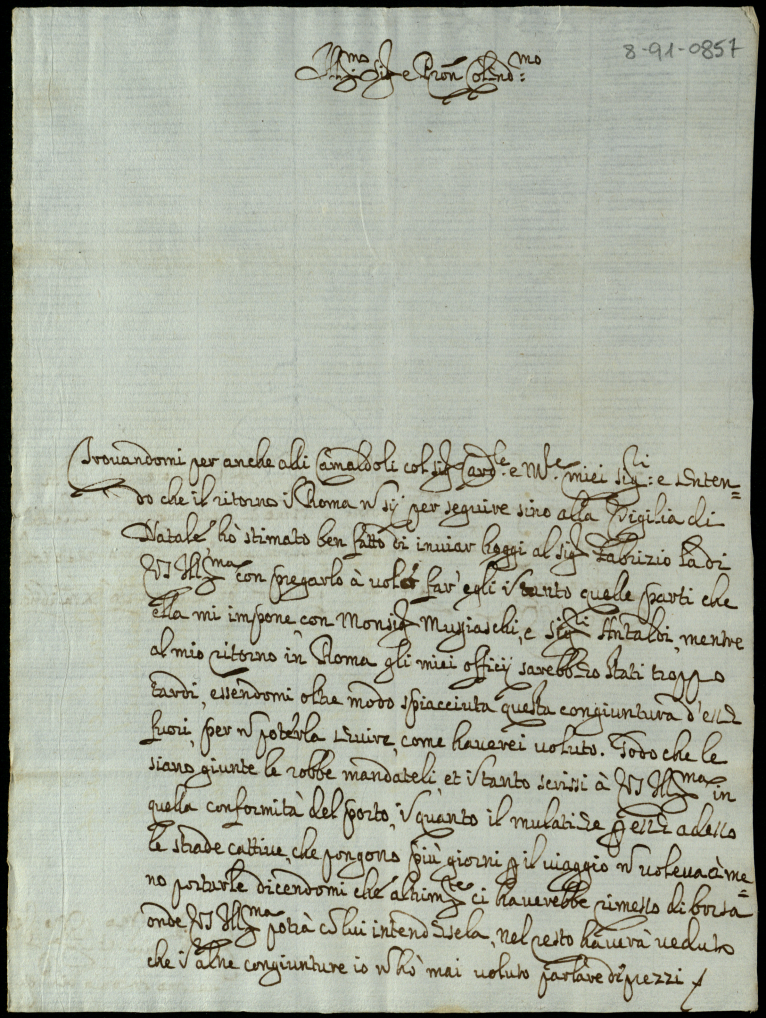 8-91-0857
Ill.mo Sig.r e Pron Colend.mo
Trovandomi per anche alli Camaldoli col Sig.r Card.le e M.se miei Sig.ri: e senten=
do che il ritorno i Roma n sij per seguire sino alla Vigilia di
Natale hò stimato ben fatto di inviar hoggi al Sig.r Fabrizio la di
VS Ill.ma con pregarlo à voler far' egli i tanto quelle parti che
ella mi impone con Monsig.r Mugiaschi, e Sig.ri Antaldi, mentre
al mio ritorno in Roma gli miei officij sarebbero stati troppo
tardi, essendomi oltre modo spiacciuta questa congiuntura d'esser
fuori, per n poterla servire, come haverei voluto. Godo che le
siano giunte le robbe mandateli, et i tanto scrissi à VS Ill.ma in
quella conformità del porto, i quanto il mulatiere p esser adesso
le strade cattive, che pongono più giorni p il viaggio n voleva à me=
no portarle dicendomi che altrim.te ci haverebbe rimesso di borsa
onde VS Ill.ma potrà cò lui intendersela, nel resto haverà veduto
che i altre congiunture io n hò mai voluto parlare di prezzi